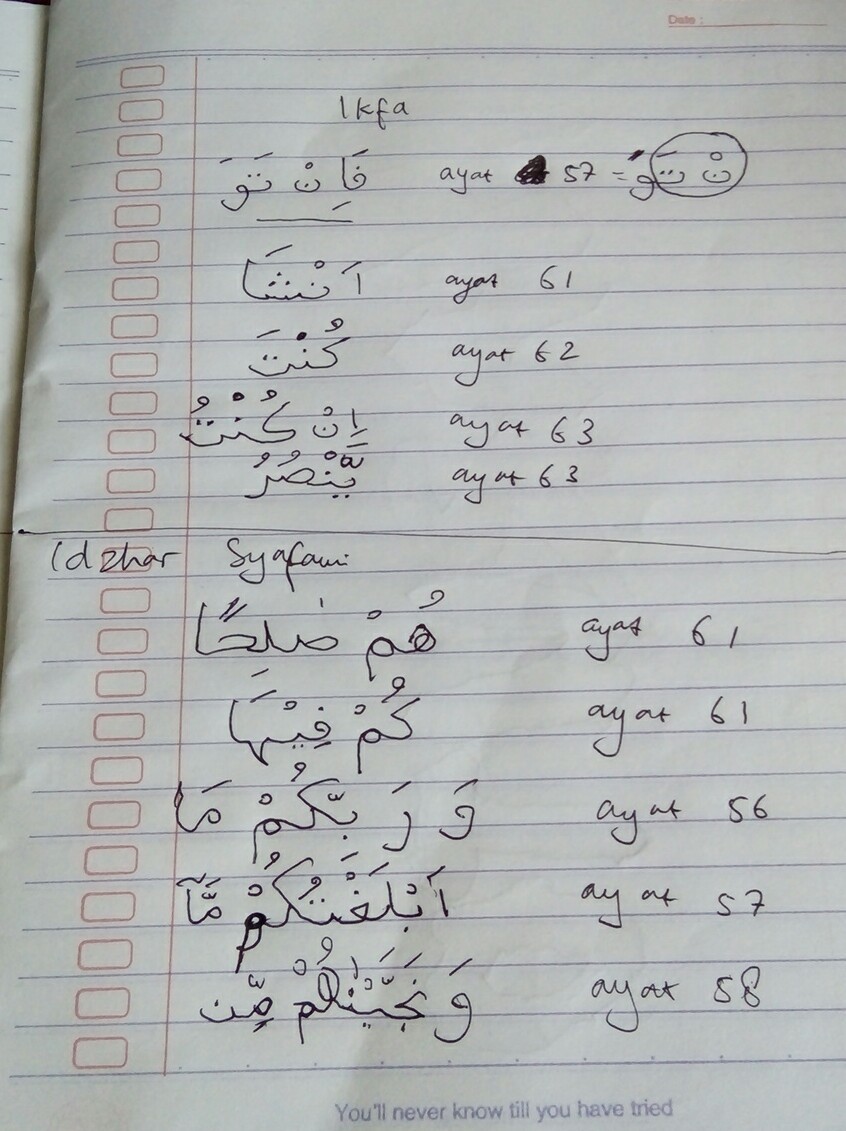 Date :
Ikfa
فَاِنْ تَوَ ayat 57 = نْ تَوَ
اَنْشَا ayat 61
كُنْتَ ayat 62
اِنْ كُنْتُ ayat 63
يَّنْصُرُ ayat 63
Idzhar Syafawi
هُمْ صٰلحًا ayat 61
كُمْ فِيْهَا ayat 61
وَ رَ بّكُمْ مَا ayat 56
اَبْلَغْتُكُمْ مَّآ ayat 57
وَ نَجَّيْنٰهُمْ مِّن ayat 58
You'll never know till you have tried